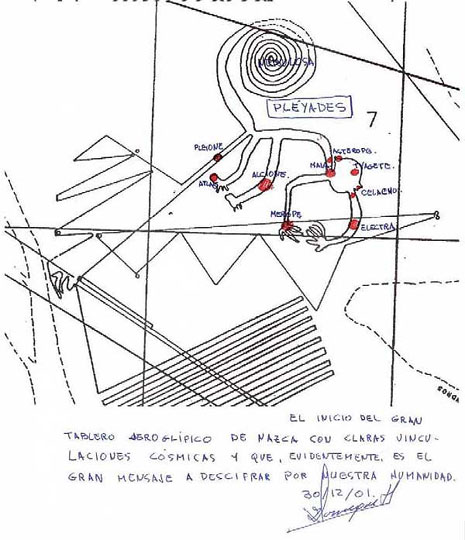 NEBULOSA
PLÉYADES
7
PLEIONE
ASTEROPE.
MAIA
TAIGETE.
ATLAS
ALCIONE
CELAENO.
MEROPE
ELECTRA
EL INICIO DEL GRAN
TABLERO AEROGLÍFICO DE NAZCA CON CLARAS VINCU-
LACIONES CÓSMICAS Y QUE, EVIDENTEMENTE, ES EL
GRAN MENSAJE A DESCIFRAR POR NUESTRA HUMANIDAD.
30/12/01.